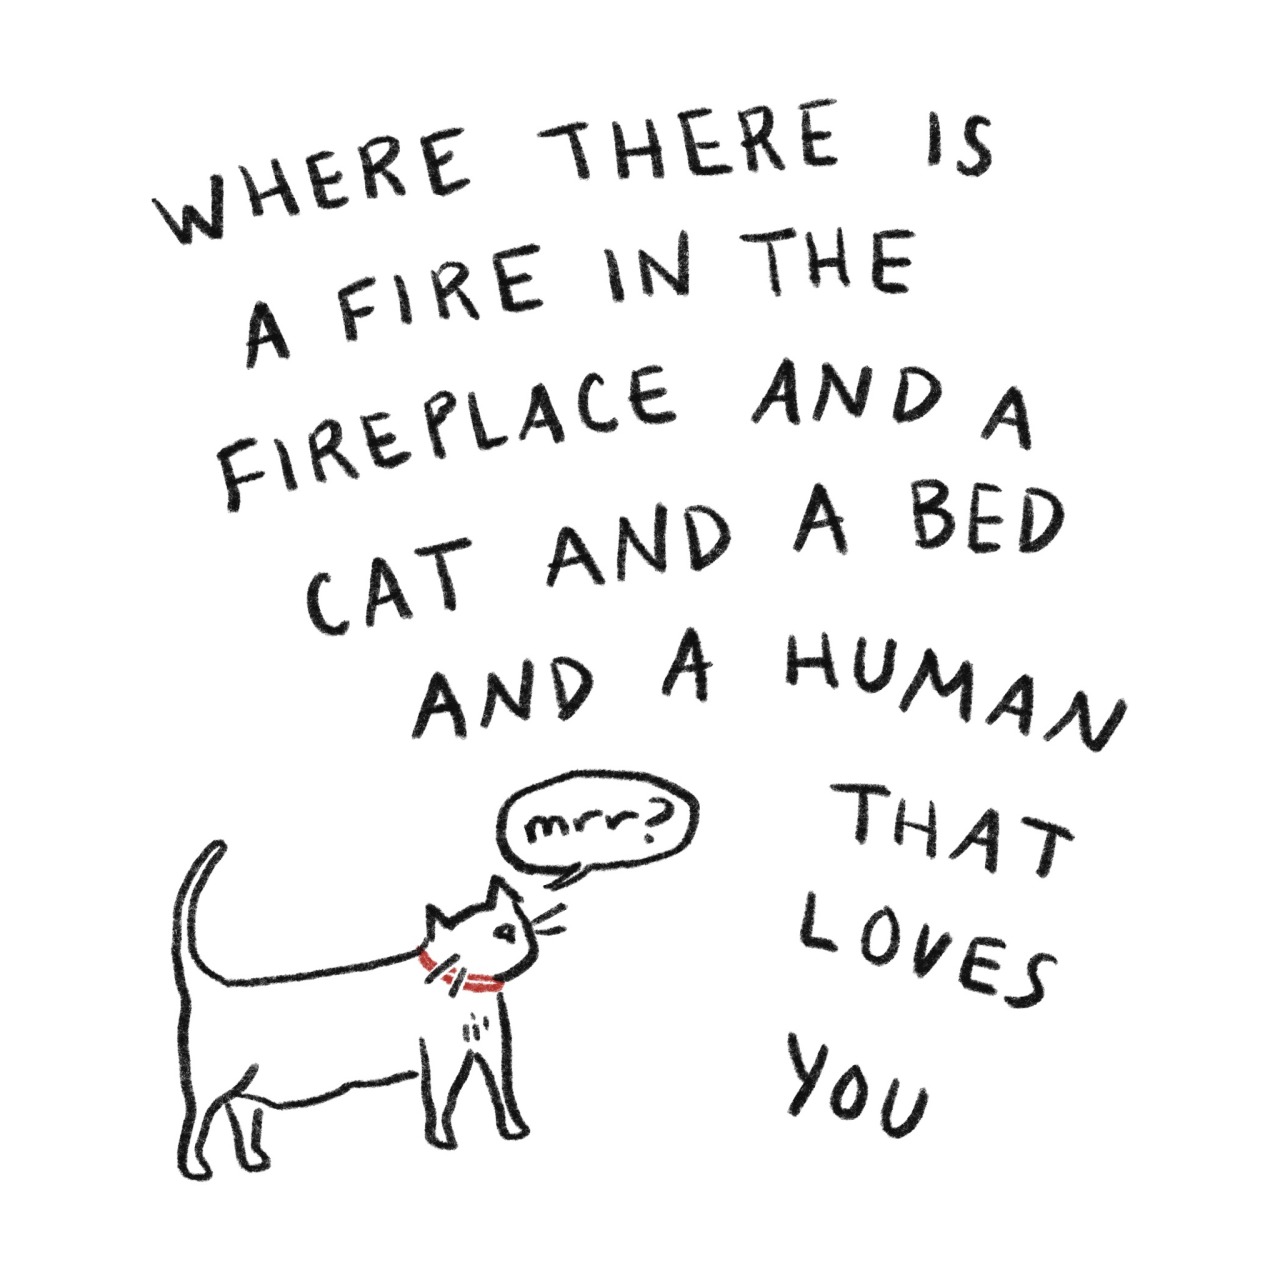 WHERE THERE IS
A FIRE IN THE
FIREPLACE AND A
CAT AND A BED
AND A HUMAN
THAT
LOVES
YOU
mrr?